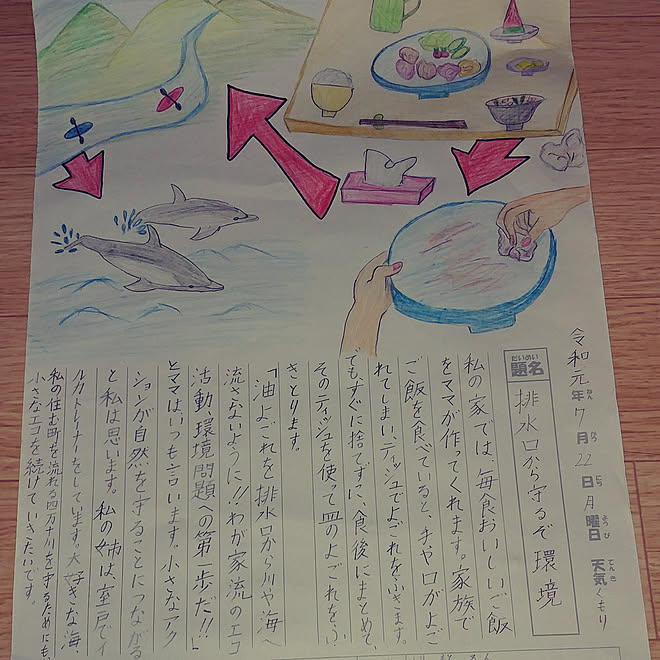 令和元年7月22日月曜日 天気くもり
ねん がつ にち ようび てんき
だいめい
題名 排水口から守るぞ環境
私の家では、毎食おいしいご飯
をママが作ってくれます。家族で
ご飯を食べていると、手や口がよご
れてしまい、ティッシュでよごれをふきます。
でもすぐに捨てずに、食後にまとめて、
そのティッシュを使って皿のよごれを、ふ
きとります。
「油よごれを排水口から川や海へ
流さないように!!わが家流のエコ
活動、環境問題への第一歩だ!!」
とママはいつも言います。小さなアク
ションが自然を守ることにつながる
と私は思います。私の姉は、室戸でイ
ルカトレーナーをしています。大好きな海、
私の住む町を流れる四万十川を守るためにも、
小さなエコを続けていきたいです。